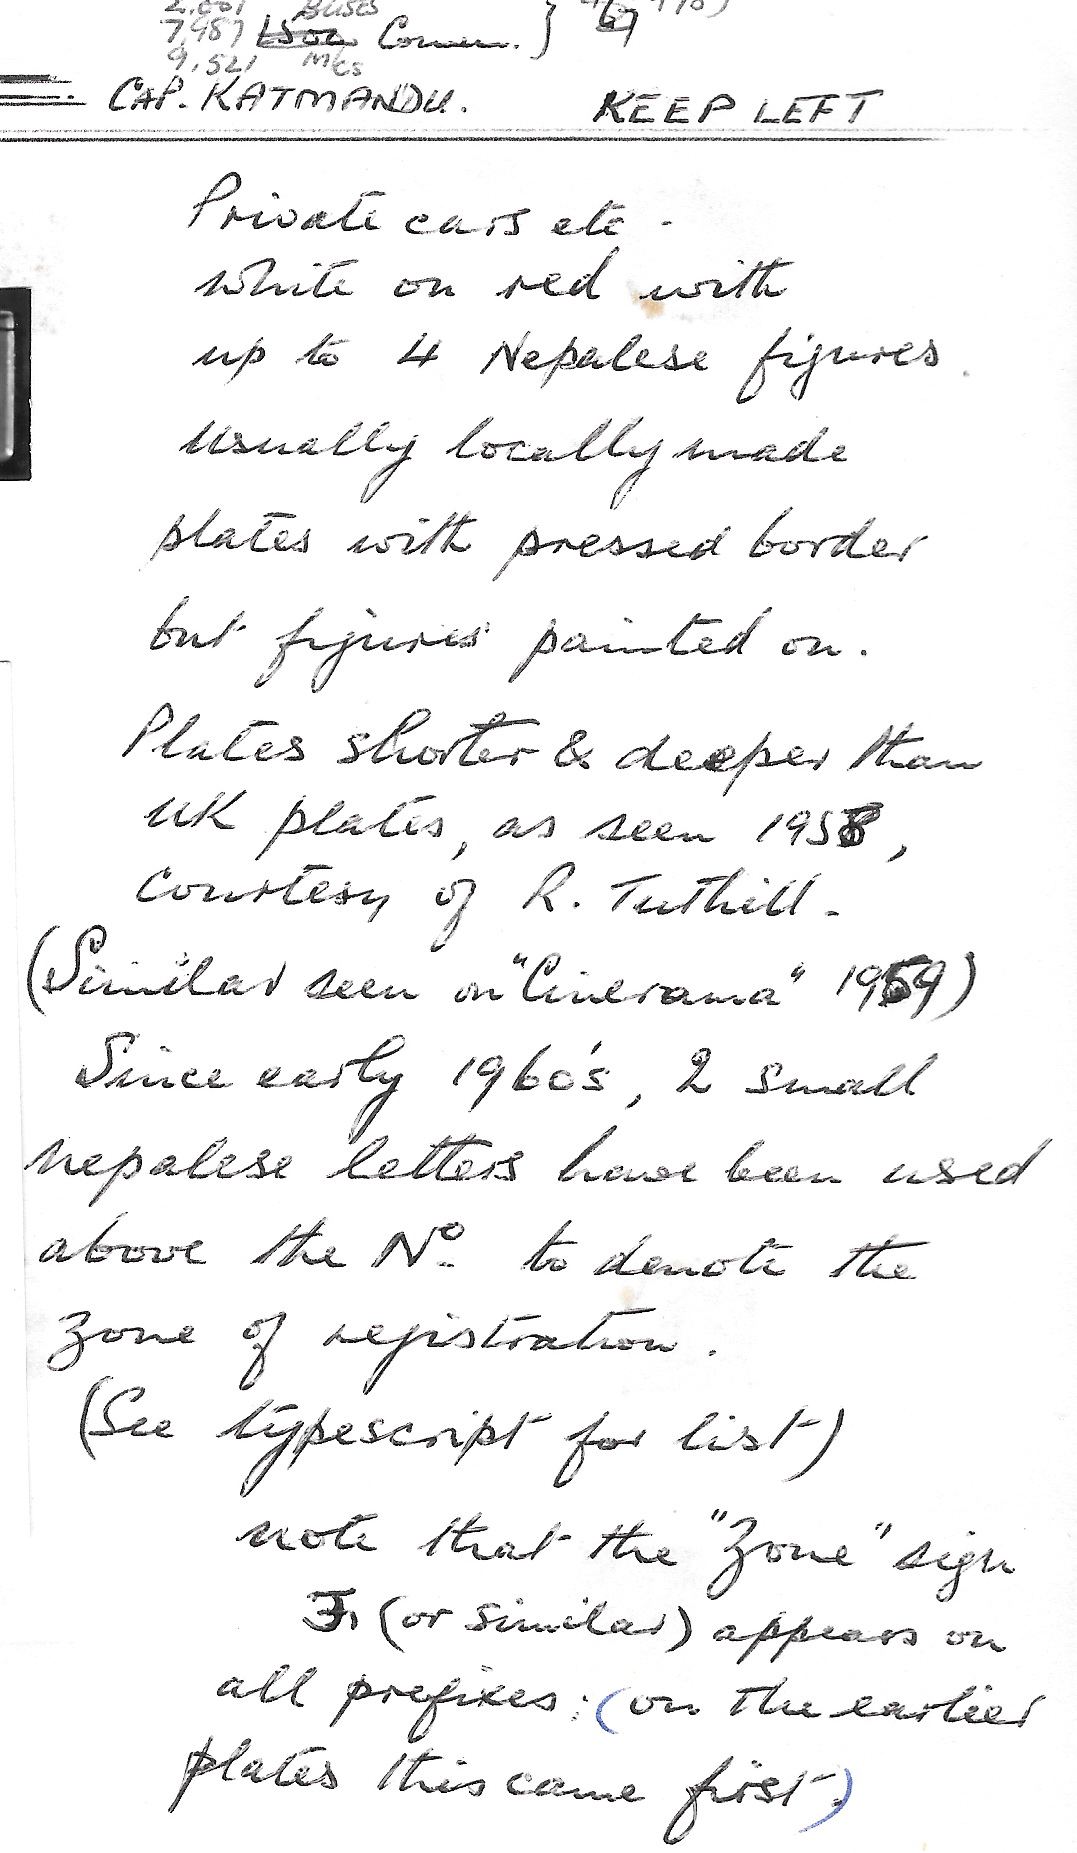 BUSES
7,987 Comm. } 67
9,521 M/Cs
CAP. KATMANDU. KEEP LEFT
Private cars etc -
white on red with
up to 4 Nepalese figures.
usually locally made
plates with pressed border
but figures painted on.
Plates shorter & deeper than
UK plates, as seen 1958,
courtesy of R. Tuthill.
(Similar seen on "Cinerama" 1959)
Since early 1960's, 2 small
nepalese letters have been used
above the Nº to denote the
zone of registration.
(See typescript for list)
note that the "Zone" sign
(or similar) appears on
all prefixes; (on the earlier
plates this came first.)